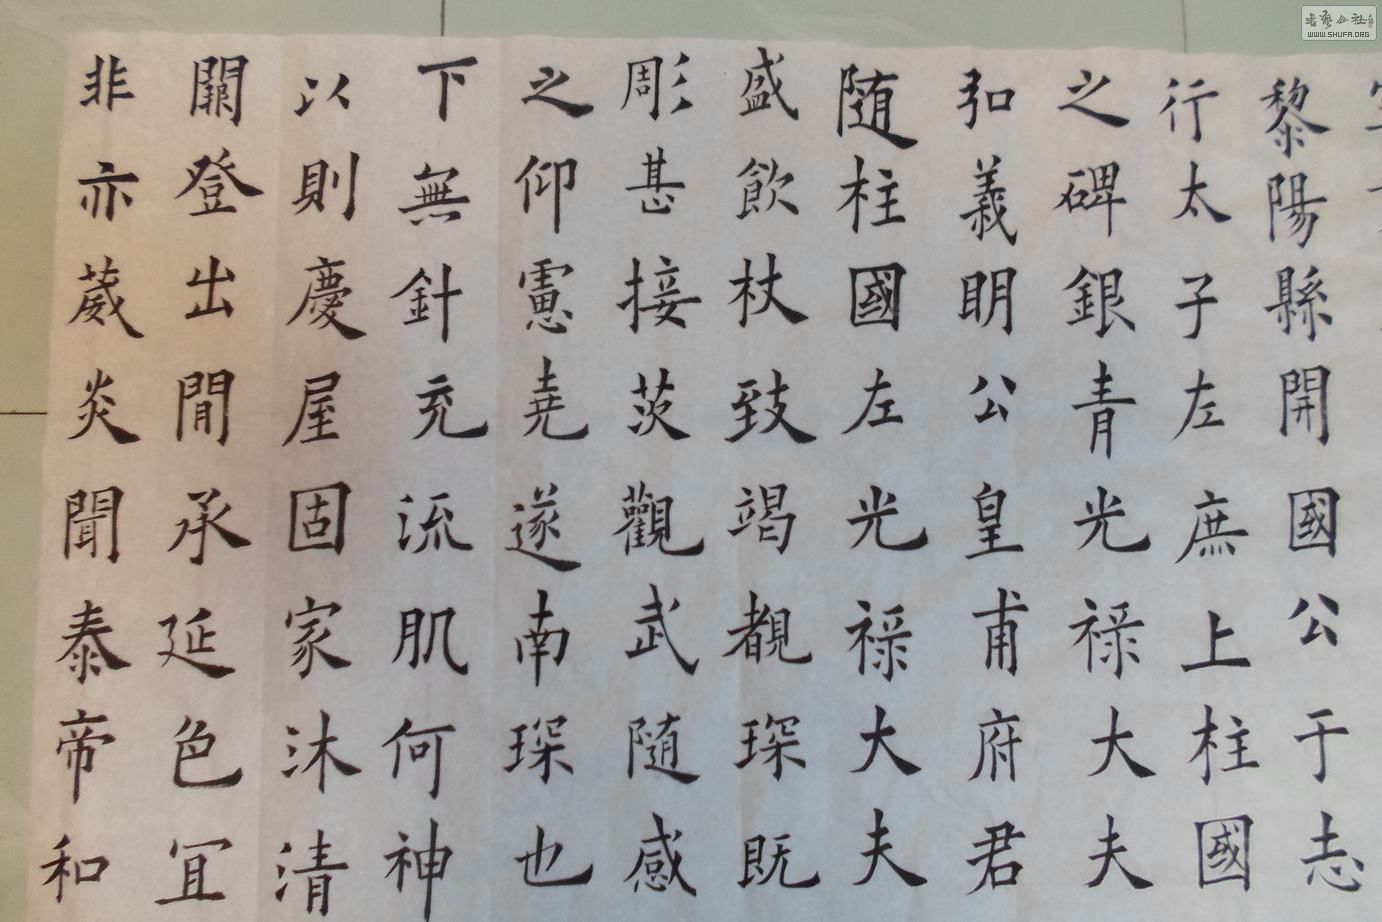 黎陽縣開國公于志
行太子左庶上柱國
之碑銀青光祿大夫
弘義明公皇甫府君
随柱國左光祿大夫
盛飲杖致竭覩琛既
彫甚接茨觀武随感
之仰憲堯遂南琛也
下無針充流肌何神
以則慶屋固家沐清
關登出閒承延色冝
非亦葳炎聞泰帝和
書藝公社
WWW.SHUFA.ORG